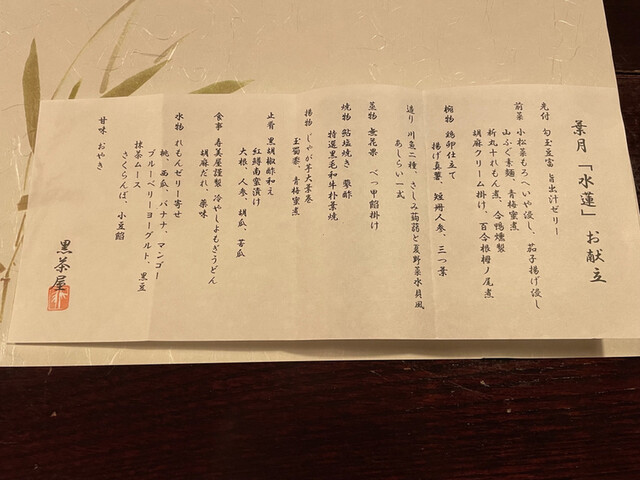 葉月「水蓮」お献立
先付 勾玉豆富 旨出汁ゼリー
前菜 小松菜もろへいや浸し、茄子揚げ浸し
山ふぐ素麺、青梅蜜煮
新丸十れもん煮、合鴨燻製
胡麻クリーム掛け、百合根梛ノ尾煮
椀物 鶏卵仕立て
揚げ真薯、短冊人参、三つ葉
造り 川魚二種、さしみ蒟蒻と夏野菜水貝風
あしらい一式
蒸物 無花果 べっ甲餡掛け
焼物 鮎塩焼き 蓼酢
特選黒毛和牛朴葉焼
揚物 じゃが芋大葉巻
玉蜀黍、青梅蜜煮
止肴 黒胡椒酢和え
紅鱒南蛮漬け
大根、人参、胡瓜、苦瓜
食事 寿美屋謹製 冷やしよもぎうどん
胡麻だれ、薬味
水物 れもんゼリー寄せ
桃、西瓜、バナナ、マンゴー
ブルーベリーヨーグルト、黒豆
抹茶ムース
さくらんぼ、小豆餡
甘味 おやき
黒茶屋